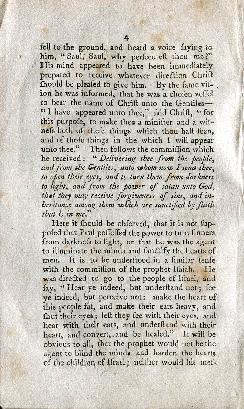 4
fell to the ground, and heard a voice saying to
him, "Saul, Saul, why persecutest thou me?"
His mind appeared to have been immediately
prepared to receive whatever direction Christ
should be pleased to give him. By the same vis-
ion he was informed, that he was a chosen vessel
to bear the name of Christ unto the Gentiles—
"I have appeared unto thee," said Christ, "for
this purpose, to make thee a minister and a wit-
ness both of these things which thou hast seen,
and of those things in the which I will appear
unto thee." Then follows the commission which
he received: "Delivering thee from the people,
and from the Gentiles, unto whom now I send thee,
to open their eyes, and to turn them from darkness
to light, and from the power of satan unto God,
that they may receive forgiveness of sins, and in-
heritance among them which are sanctified by faith
that is in me."
Here it should be observed, that it is not sup-
posed that Paul possessed the power to turn sinners
from darkness to light, or that he was the agent
to illuminate the minds and sanctify the hearts of
men. It is to be understood in a similar sense
with the commission of the prophet Isaiah. He
was directed to go to the people of Israel, and
say, "Hear ye indeed, but understand not; see
ye indeed, but perceive not: make the heart of
this people fat, and make their ears heavy, and
shut their eyes; lest they see with their eyes, and
hear with their ears, and understand with their
heart, and convert, and be healed." It will be
obvious to all, that the prophet would not be the
agent to blind the minds and harden the hearts
of the children of Israel; neither would his mes-